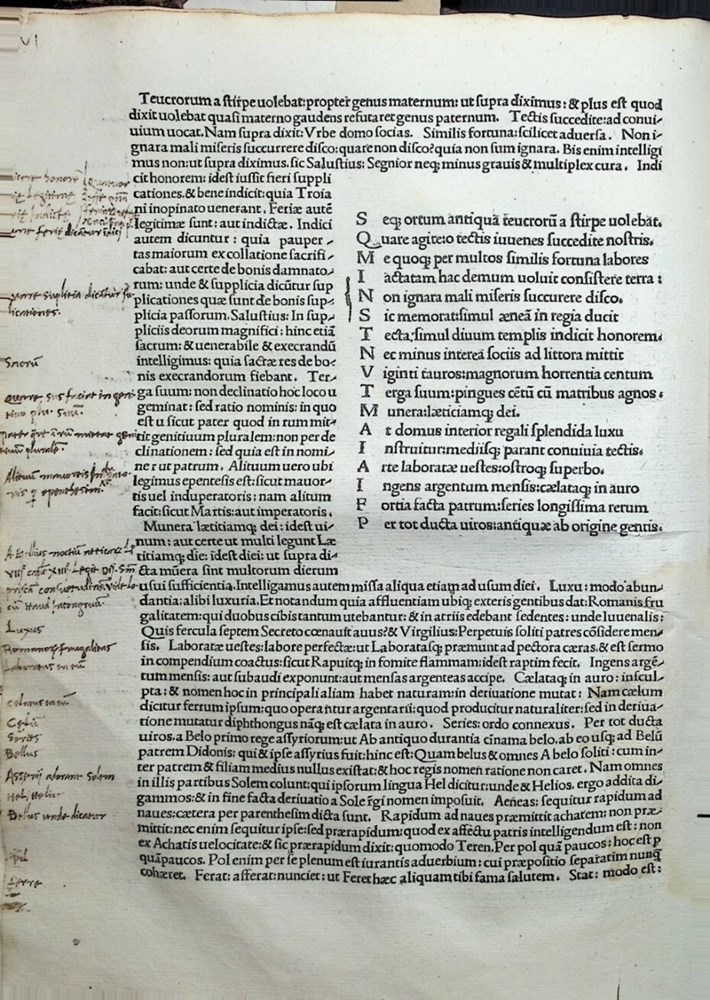 VI
Teucrorum a stirpe uolebat: propter genus maternum: ut supra diximus: & plus est quod
dixit uolebat quasi materno gaudens refutaret genus paternum. Tectis succedite: ad conui-
uium uocat. Nam supra dixit: Vrbe domo socias. Similis fortuna: scilicet aduersa. Non i-
gnara mali miseris succurrere disco: quare non disco? quia non sum ignara. Bis enim intelligi
mus non: ut supra diximus. sic Salustius: Segnior neq; minus grauis & multiplex cura. Indi
cit honorem: idest iussit fieri suppli
cationes. & bene indicit: quia Troia
ni inopinato uenerant. Feriæ autē
legitimæ sunt: aut indictæ. Indici
autem dicuntur: quia pauper-
tas maiorum ex collatione sacrifi-
cabat: aut certe de bonis damnato-
rum: unde & supplicia dicūtur sup
plicationes quæ sunt de bonis sup-
plicia passorum. Salustius: In sup-
pliciis deorum magnifici: hinc etiā
sacrum: & uenerabile & execrandū
intelligimus: quia sacræ res de bo-
nis execrandorum fiebant. Ter-
ga suum: non declinatio hoc loco u
geminat: sed ratio nominis: in quo
est u sicut pater quod in rum mit-
tit genitiuum pluralem: non per de
clinationem: sed quia est in nomi-
ne r ut patrum. Alituum uero ubi
legimus epentesis est: sicut mauor-
tis uel induperatoris: nam alitum
facit: sicut Martis: aut imperatoris.
Munera lætitiamq; dei: idest ui-
num: aut certe ut multi legunt Læ
titiamq; die: idest diei: ut supra di-
cta mūera sint multorum dierum
S eq; ortum antiquā teucrorū a stirpe uolebat.
Q uare agite: o tectis iuuenes succedite nostris.
M e quoq; per multos similis fortuna labores
I actatam hac demum uoluit consistere terra:
N on ignara mali miseris succurere disco.
S ic memorat: simul æneā in regia ducit
T ecta: simul diuum templis indicit honorem.
N ec minus interea sociis ad littora mittit
V iginti tauros: magnorum horrentia centum
T erga suum: pingues cētū cū matribus agnos.
M unera: læticiamq; dei.
A t domus interior regali splendida luxu
I nstruitur: mediisq; parant conuiuia tectis.
A rte laboratæ uestes: ostroq; superbo.
I ngens argentum mensis: cælataq; in auro
F ortia facta patrum: series longissima rerum
P er tot ducta uiros: antiquæ ab origine gentis.
usui sufficientia. Intelligamus autem missa aliqua etiam ad usum diei. Luxu: modo abun-
dantia: alibi luxuria. Et notandum quia affluentiam ubiq; exteris gentibus dat: Romanis fru
galitatem: qui duobus cibis tantum utebantur: & in atriis edebant sedentes: unde Iuuenalis:
Quis fercula septem Secreto cœnauit auus? & Virgilius: Perpetuis soliti patres cōsidere men-
sis. Laboratæ uestes: labore perfectæ: ut Laboratasq; præmunt ad pectora cæras. & est sermo
in compendium coactus: sicut Rapuitq; in fomite flammam: idest raptim fecit. Ingens argē-
tum mensis: aut subaudi exponunt: aut mensas argenteas accipe. Cælataq; in auro: inscul-
pta: & nomen hoc in principali aliam habet naturam: in deriuatione mutat: Nam cælum
dicitur ferrum ipsum: quo operantur argentarii: quod producitur naturaliter: sed in deriua-
tione mutatur diphthongus nāq; est cælata in auro. Series: ordo connexus. Per tot ducta
uiros. a Belo primo rege assyriorum: ut Ab antiquo durantia cīnama belo. ab eo usq; ad Belū
patrem Didonis: qui & ipse assyrius fuit: hinc est: Quam belus & omnes A belo soliti: cum in-
ter patrem & filiam medius nullus existat: & hoc regis nomen ratione non caret. Nam omnes
in illis partibus Solem colunt: qui ipsorum lingua Hel dicitur: unde & Helios. ergo addita di-
gammos: & in fine facta deriuatio a Sole rgi nomen imposuit. Aeneas: sequitur rapidum ad
naues: cætera per parenthesim dicta sunt. Rapidum ad naues præmittit achatem: non præ-
mittit: nec enim sequitur ipse: sed prærapidum: quod ex affectu patris intelligendum est: non
ex Achatis uelocitate: & sic prærapidum dixit: quomodo Teren. Per pol quā paucos: hoc est p
quā paucos. Pol enim per se plenum est iurantis aduerbium: cui præpositio separatim nunq̄
cohæret. Ferat: afferat: nunciet: ut Feret hæc aliquam tibi fama salutem. Stat: modo est:
Sacrū
Luxus
Cælū
Series
Bellus
Assirii adorant solem
Belus unde dicatur
Ferre